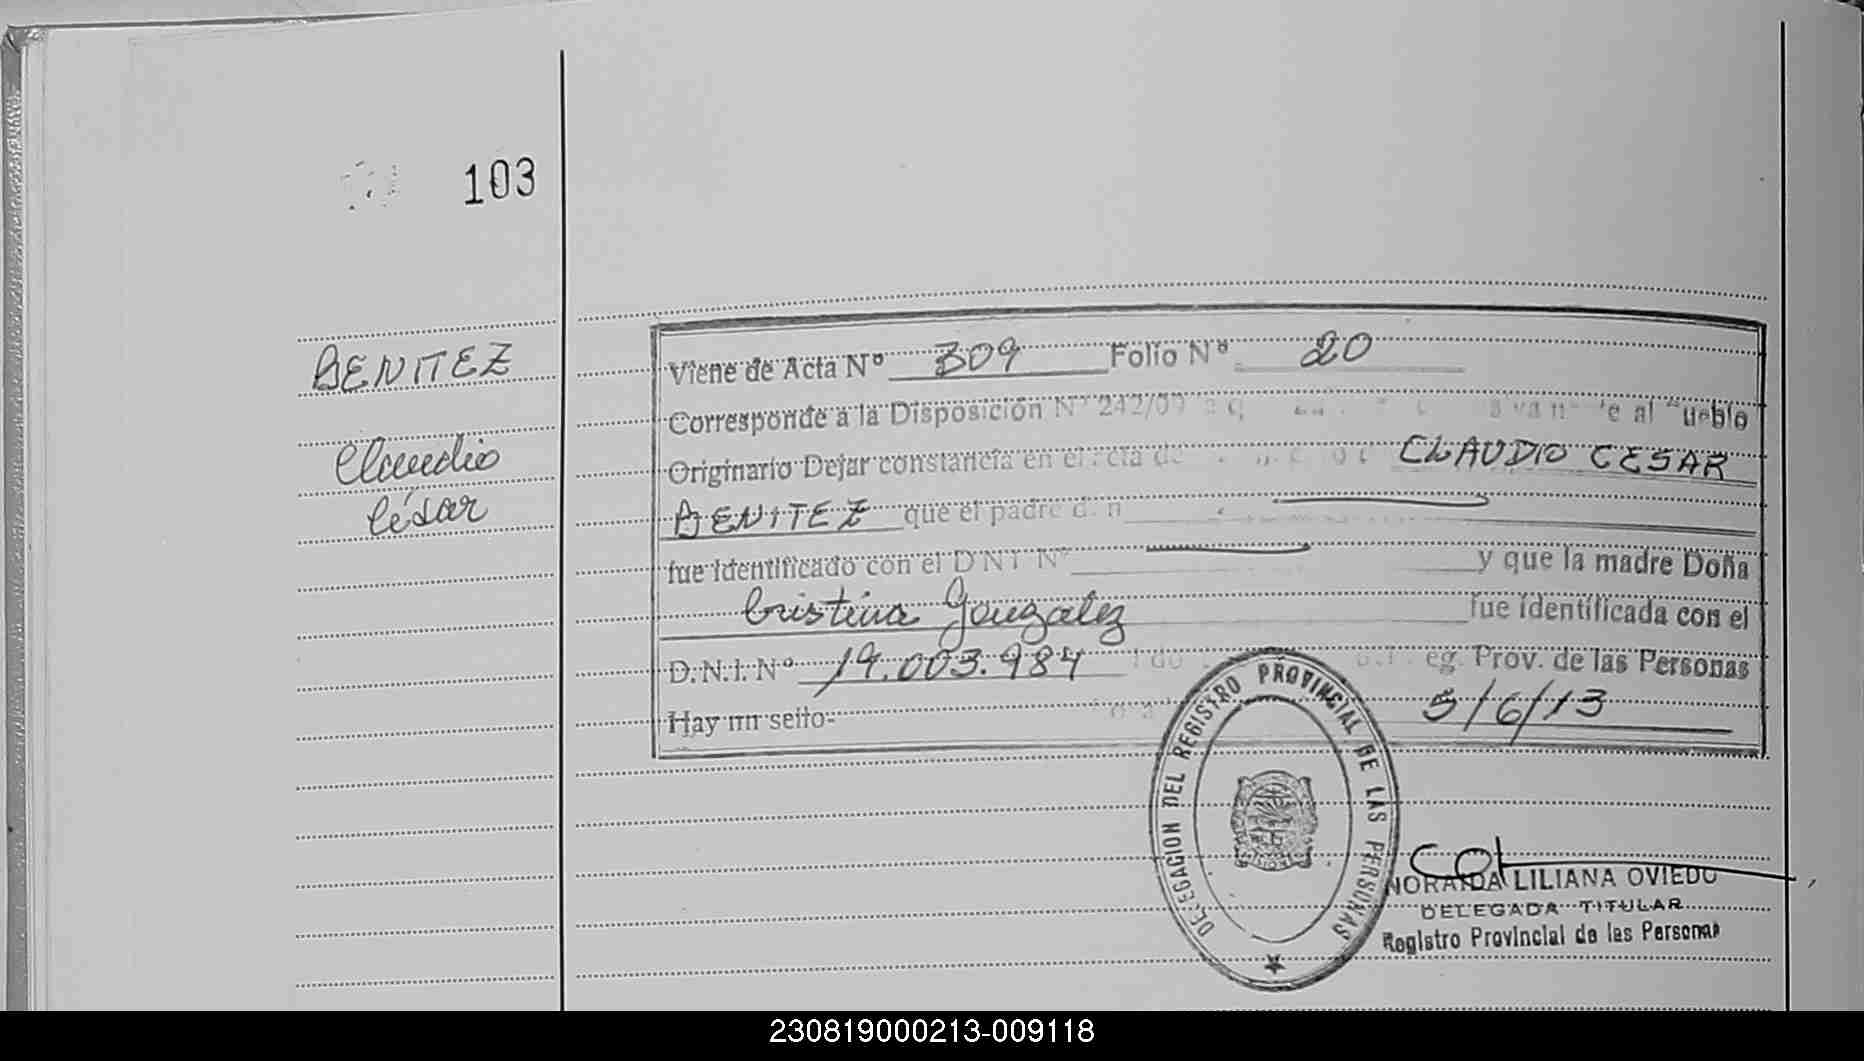 103
BENITEZ
Claudio
César
Viene de Acta Nº 309 Folio Nº 20
Corresponde a la Disposición Nº 242/09 al Pueblo
Originario Dejar constancia en el acta de CLAUDIO CESAR
BENITEZ que el padre don
fue identificado con el DNI Nº y que la madre Doña
Cristina Gonzalez fue identificada con el
D.N.I. Nº 19.003.984 Reg. Prov. de las Personas
Hay un sello- 5/6/13
DELEGACION DEL REGISTRO PROVINCIAL DE LAS PERSONAS
NORAIDA LILIANA OVIEDO
DELEGADA TITULAR
Registro Provincial de las Personas
230819000213-009118